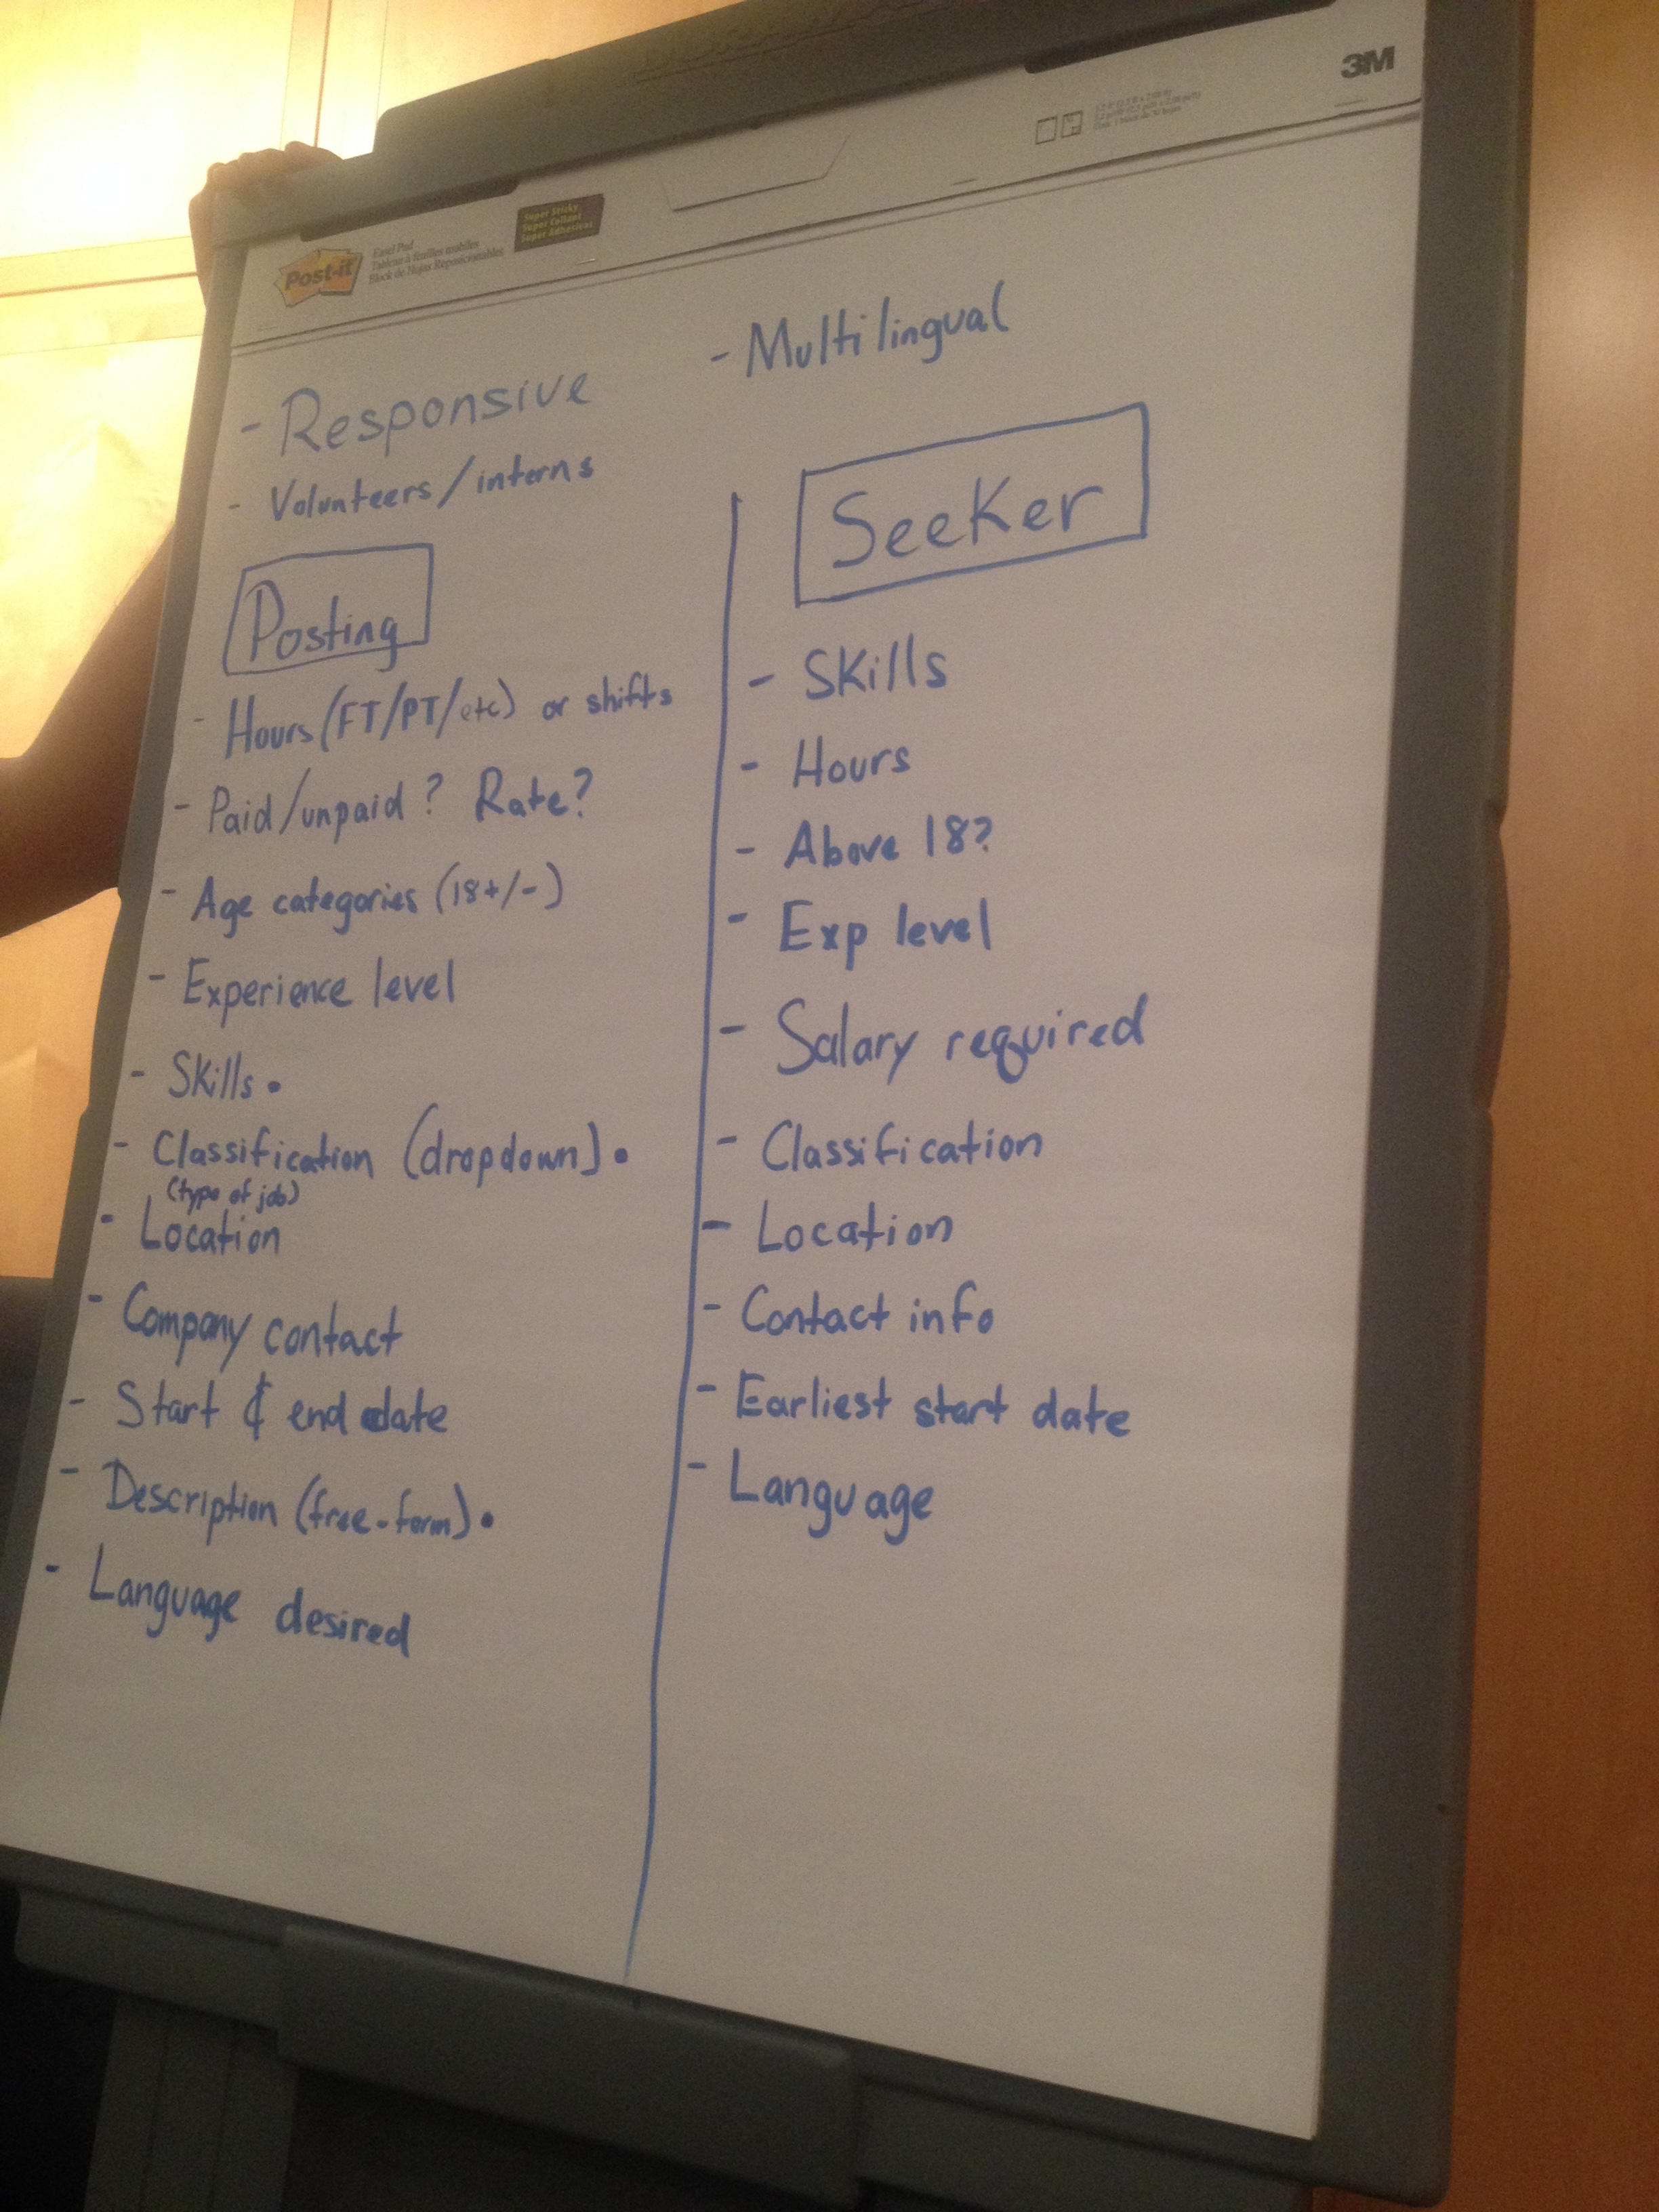 3M
Post-it
Easel Pad
Tableau à feuilles mobiles
Block de Hojas Reposicionables
Super Sticky
Super Collant
Super Adhesivas
- Responsive
- Multilingual
- Volunteers/interns
Posting
- Hours (FT/PT/etc) or shifts
- Paid/unpaid? Rate?
- Age categories (18+/-)
- Experience level
- Skills •
- Classification (dropdown) •
(type of job)
- Location
- Company contact
- Start & end date
- Description (free-form) •
- Language desired
Seeker
- Skills
- Hours
- Above 18?
- Exp level
- Salary required
- Classification
- Location
- Contact info
- Earliest start date
- Language